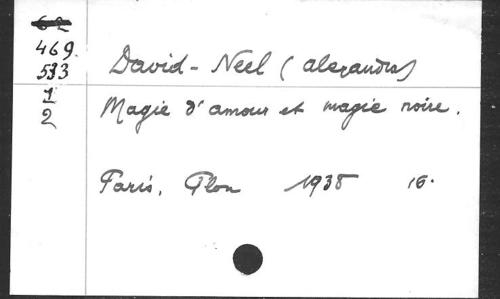 62
469.
533
1
2
David-Neel (alexandra)
Magie d'amour et magie noire.
Paris, Plon 1938 16.